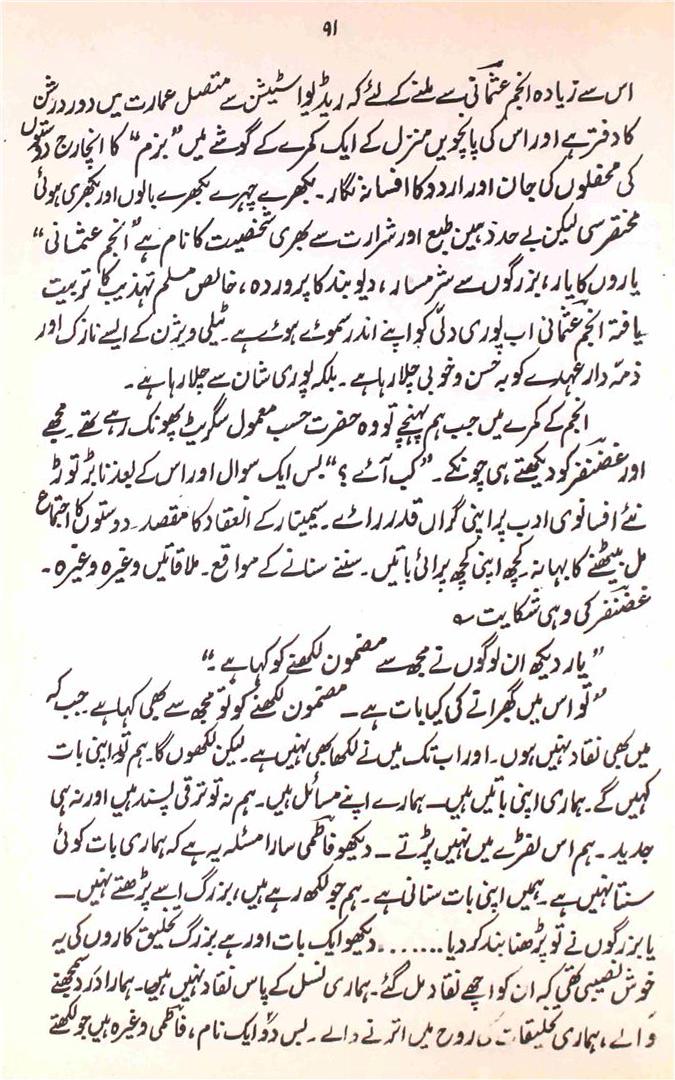 ۹۱
اس سے زیادہ انجم عثمانی سے ملنے کے لئے کہ ریڈیو اسٹیشن سے متصل عمارت میں دور درشن
کا دفتر ہے اور اس کی پانچویں منزل کے ایک کمرے کے گوشے میں "بزم" کا انچارج دوستوں
کی محفلوں کی جان اور اردو کا افسانہ نگار۔ بکھرے چہرے بکھرے بالوں اور بکھری ہوئی
مختصر سی لیکن بے حد ذہین طبع اور شرارت سے بھری شخصیت کا نام ہے "انجم عثمانی"
یاروں کا یار، بزرگوں سے شرمسار، دیوبند کا پروردہ، خالص مسلم تہذیب کا تربیت
یافتہ انجم عثمانی اب پوری دلّی کو اپنے اندر سموئے ہوئے ہے۔ ٹیلی ویژن کے ایسے نازک اور
ذمہ دار عہدے کو بہ حسن و خوبی چلا رہا ہے۔ بلکہ پوری شان سے چلا رہا ہے۔
انجم کے کمرے میں جب ہم پہنچے تو وہ حضرت حسب معمول سگریٹ پھونک رہے تھے۔ مجھے
اور غضنفر کو دیکھتے ہی چونکے۔ "کب آئے؟" بس ایک سوال اور اس کے بعد تابڑ توڑ
نئے افسانوی ادب پر اپنی گراں قدر رائے۔ سیمینار کے انعقاد کا مقصد۔ دوستوں کا اجتماع
مل بیٹھنے کا بہانہ۔ کچھ اپنی کچھ پرائی باتیں۔ سننے سنانے کے مواقع۔ ملاقاتیں وغیرہ وغیرہ۔
غضنفر کی وہی شکایت ؎
"یار دیکھ ان لوگوں نے مجھ سے مضمون لکھنے کو کہا ہے۔"
"تو اس میں گھبرانے کی کیا بات ہے ــ مضمون لکھنے کو تو مجھ سے بھی کہا ہے جب کہ
میں بھی نقاد نہیں ہوں۔ اور اب تک میں نے لکھا بھی نہیں ہے۔ لیکن لکھوں گا۔ ہم تو اپنی بات
کہیں گے۔ ہماری اپنی باتیں ہیں ــ ہمارے اپنے مسائل ہیں۔ ہم نہ تو ترقی پسند ہیں اور نہ ہی
جدید۔ ہم اس لفڑے میں نہیں پڑتے ــ دیکھو فاطمی سارا مسئلہ یہ ہے کہ ہماری بات کوئی
سنتا نہیں ہے۔ ہمیں اپنی بات سنانی ہے۔ ہم جو لکھ رہے ہیں، بزرگ اسے پڑھتے نہیں ــ
یا بزرگوں نے تو پڑھنا بند کر دیا ....... دیکھو ایک بات اور ہے بزرگ تخلیق کاروں کی یہ
خوش نصیبی تھی کہ ان کو اچھے نقاد مل گئے۔ ہماری نسل کے پاس نقاد نہیں ہیں۔ ہمارا درد سمجھنے
والے، ہماری تخلیقات کی روح میں اترنے والے۔ بس دو ایک نام، فاطمی وغیرہ ہیں جو لکھتے